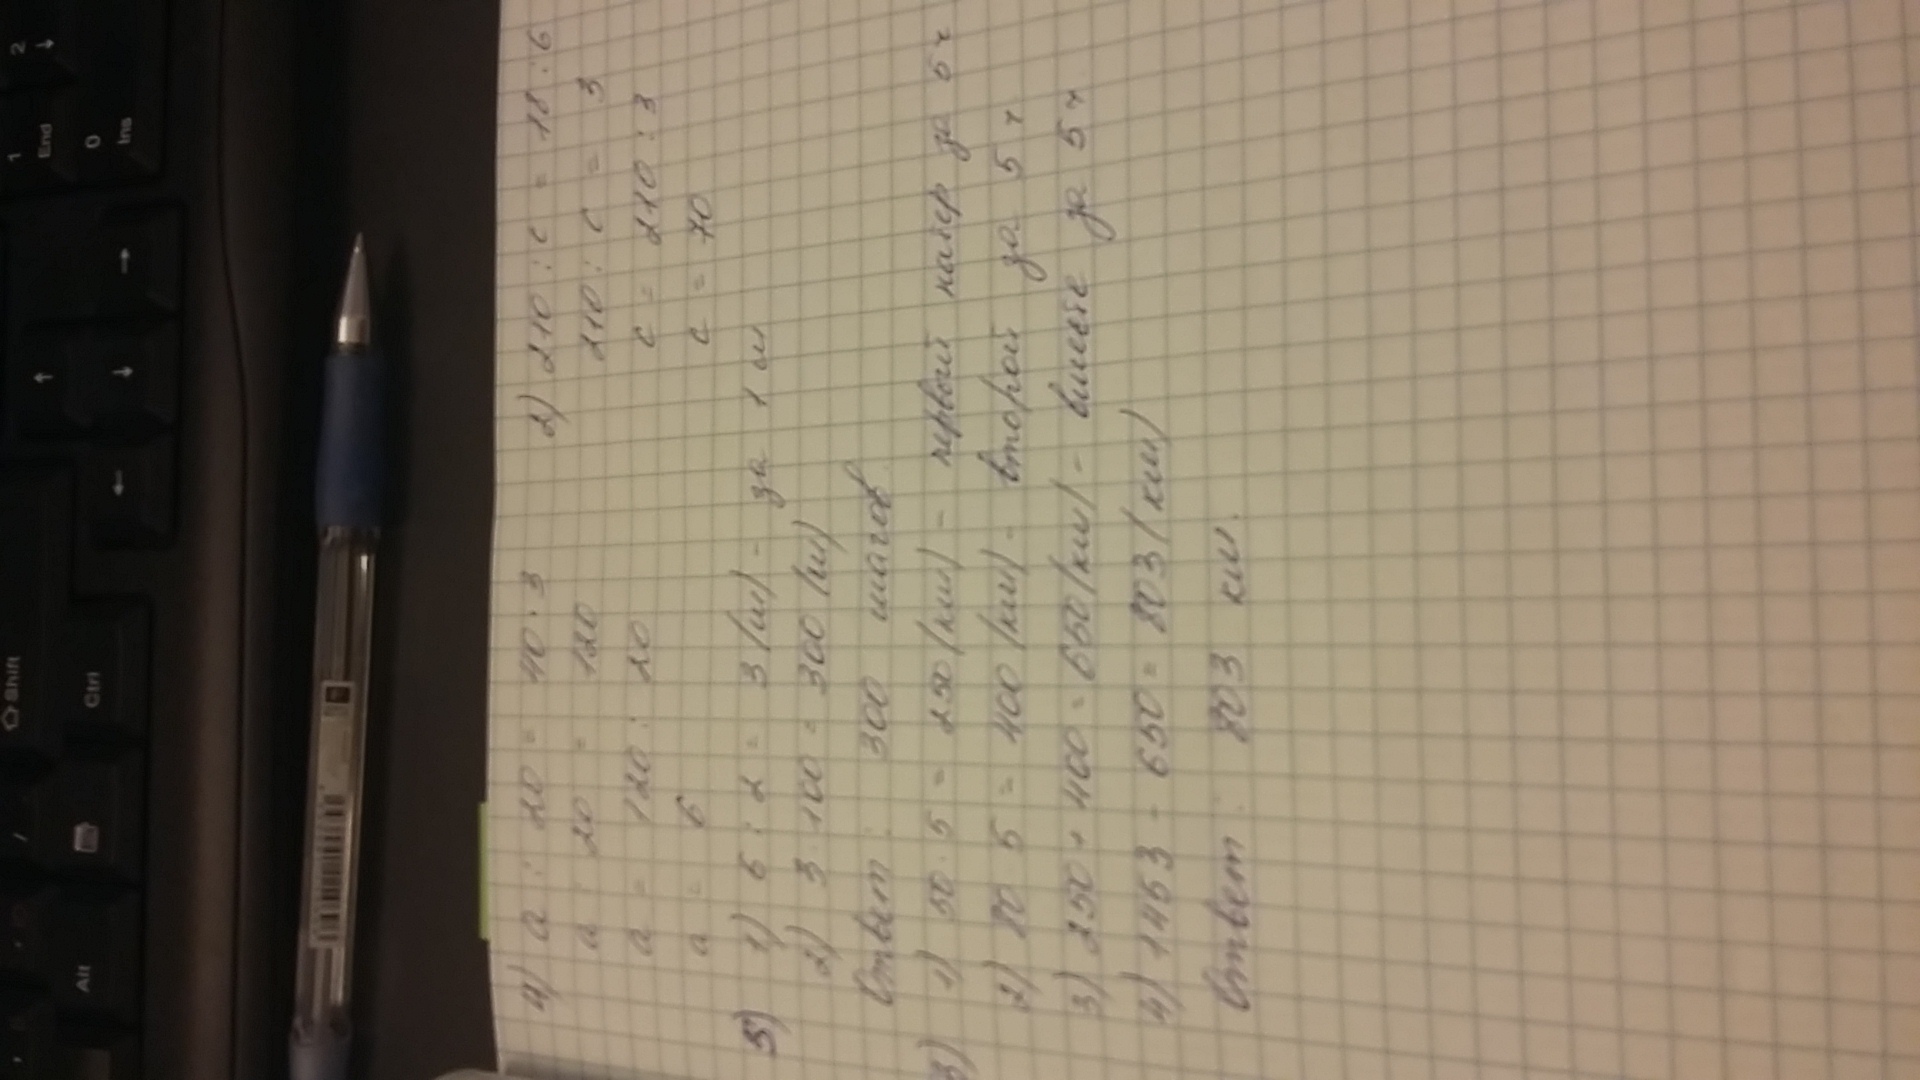 4) a : 20 = 40 · 3
a : 20 = 120
a = 120 : 20
a = 6
2) 210 : c = 18 : 6
210 : c = 3
c = 210 : 3
c = 70
5) 1) 6 : 2 = 3 (ш) - за 1 м
2) 3 · 100 = 300 (ш)
Ответ: 300 шагов.
3) 1) 50 · 5 = 250 (км) - первый катер за 5 ч
2) 80 · 5 = 400 (км) - второй за 5 ч
3) 250 + 400 = 650 (км) - вместе за 5 ч.
4) 1453 - 650 = 803 (км)
Ответ: 803 км.
Shift
Ctrl
Alt
1
End
2
0
Ins